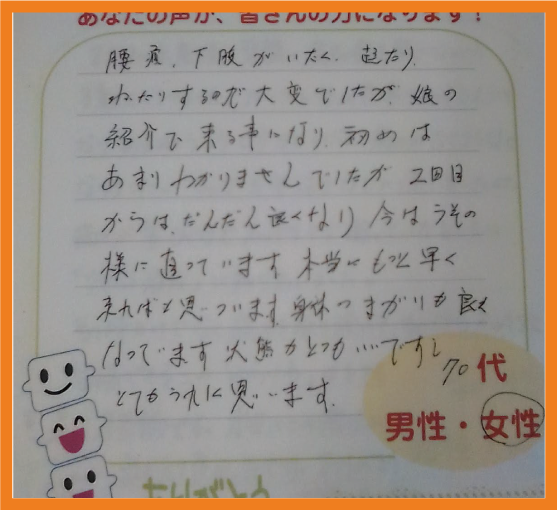 あなたの声が、皆さんの力になります!
腰痛、下肢がいたく、起たり
ねたりするので大変でしたが、娘の
紹介で来る事になり、初めは
あまりわかりませんでしたが2回目
からは、だんだん良くなり今はうその
様に直っています。本当にもっと早く
来ればと思っています。身体のまがりも良く
なっています 状態がとてもいいですし
とてもうれしく思います。
70代
男性・女性